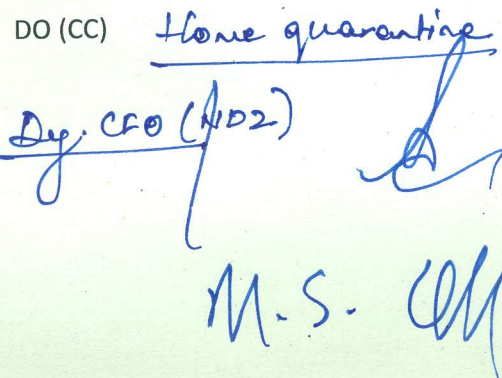 DO (CC) Home quarantine
Dy. CFO (ND2)
M. S.